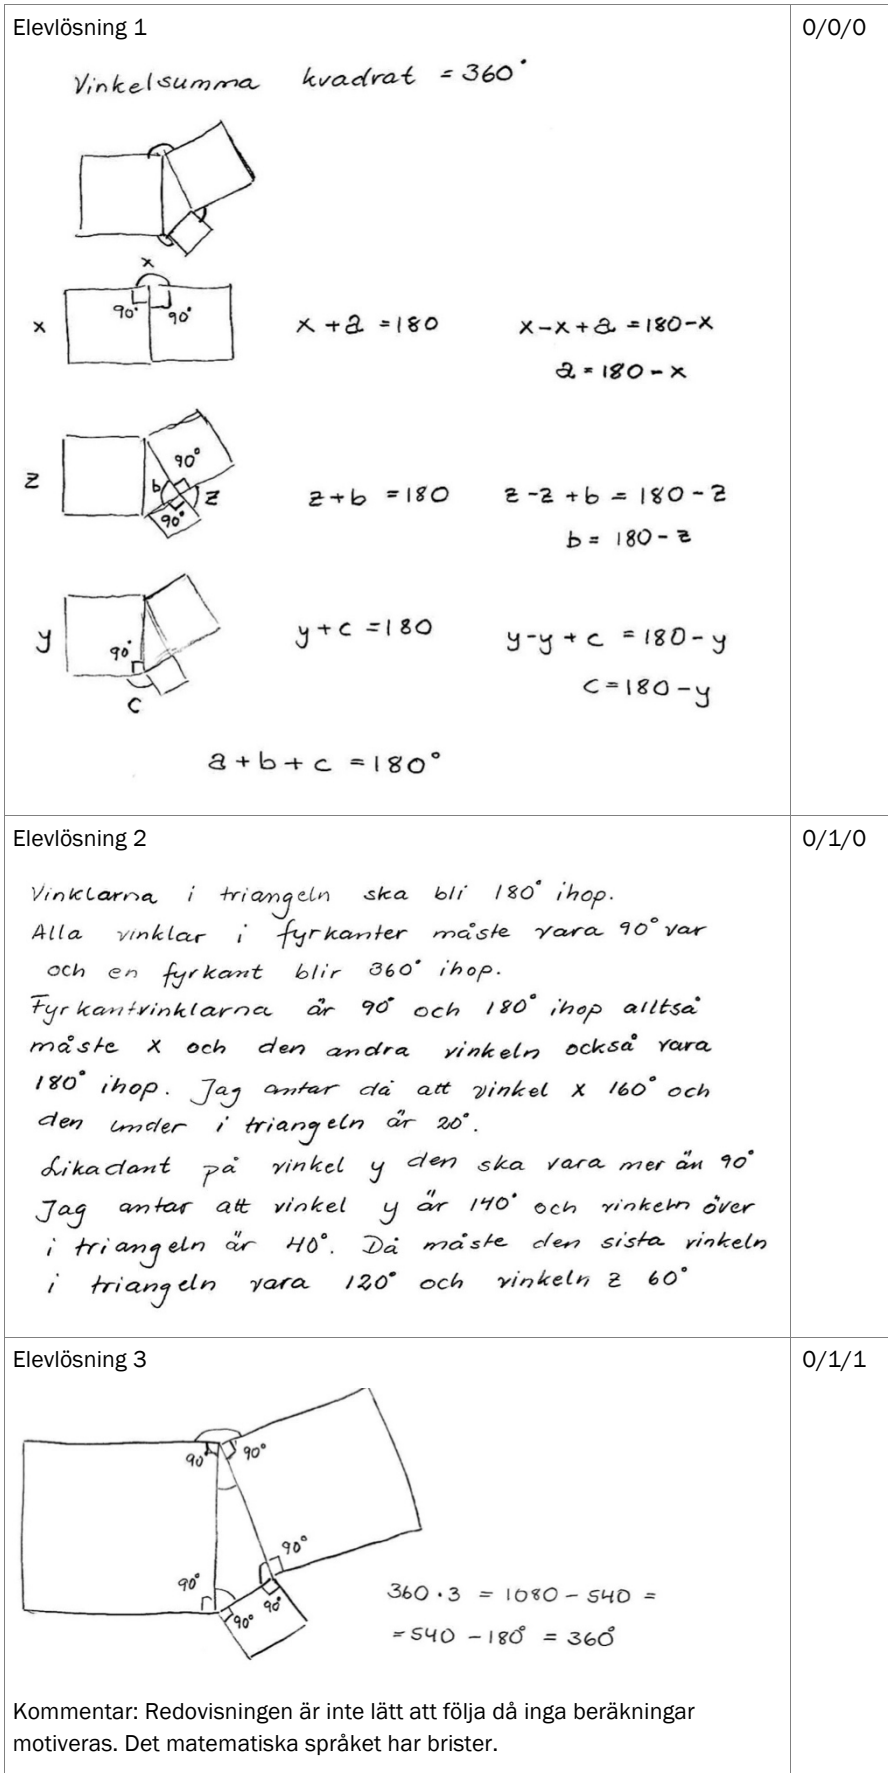 Elevlösning 1
0/0/0
Vinkelsumma kvadrat = 360°
x
x
90° 90°
x + a = 180
x - x + a = 180 - x
a = 180 - x
z
90°
b
z
90°
z + b = 180
z - z + b = 180 - z
b = 180 - z
y
90°
c
y + c = 180
y - y + c = 180 - y
c = 180 - y
a + b + c = 180°
Elevlösning 2
0/1/0
Vinklarna i triangeln ska bli 180° ihop.
Alla vinklar i fyrkanter måste vara 90° var
och en fyrkant blir 360° ihop.
Fyrkantvinklarna är 90° och 180° ihop alltså
måste x och den andra vinkeln också vara
180° ihop. Jag antar då att vinkel x 160° och
den under i triangeln är 20°.
Likadant på vinkel y den ska vara mer än 90°
Jag antar att vinkel y är 140° och vinkeln över
i triangeln är 40°. Då måste den sista vinkeln
i triangeln vara 120° och vinkeln z 60°
Elevlösning 3
0/1/1
90° 90°
90°
90°
90° 90°
360 · 3 = 1080 - 540 =
= 540 - 180° = 360°
Kommentar: Redovisningen är inte lätt att följa då inga beräkningar
motiveras. Det matematiska språket har brister.